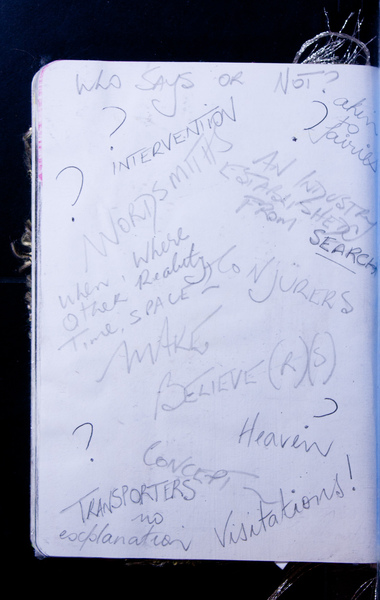 WHO SAYS OR NOT?
akin
to
fairies
?
?
INTERVENTION
?
WORDSMITHS
AN INDUSTRY
ESTABLISHED
FROM SEARCH
When, Where
Other Reality
Time, SPACE -
CONJÜRERS
MAKE
BELIEVE (R)(S)
?
Heaven
CONCEPT
TRANSPORTERS
no
exxplanation
Visitations!